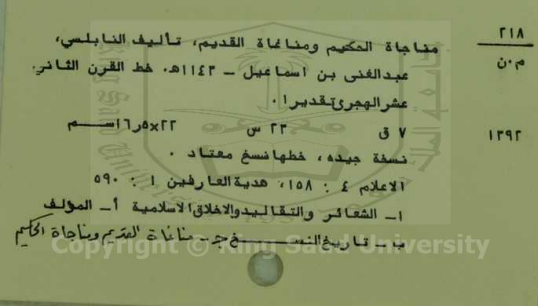 ٢١٨
م٠ن
مناجاة الحكيم ومناغاة القديم، تأليف النابلسي،
عبدالغنى بن اسماعيل – ١١٤٣هـ. خط القرن الثاني
عشر الهجرى تقديرا ٠
١٣٩٢
٧ ق ٢٣ س ٢٢×١٦٫٥ سم
نسخة جيده، خطها نسخ معتاد ٠
الاعلام ٤ : ١٥٨، هدية العارفين ١ : ٥٩٠
١ــ الشعائر والتقاليد والاخلاق الاسلامية أــ المؤلف
ب ــ تاريخ النسخ جـ ــ مناغاة القديم ومناجاة الحكيم
Copyright © King Saud University